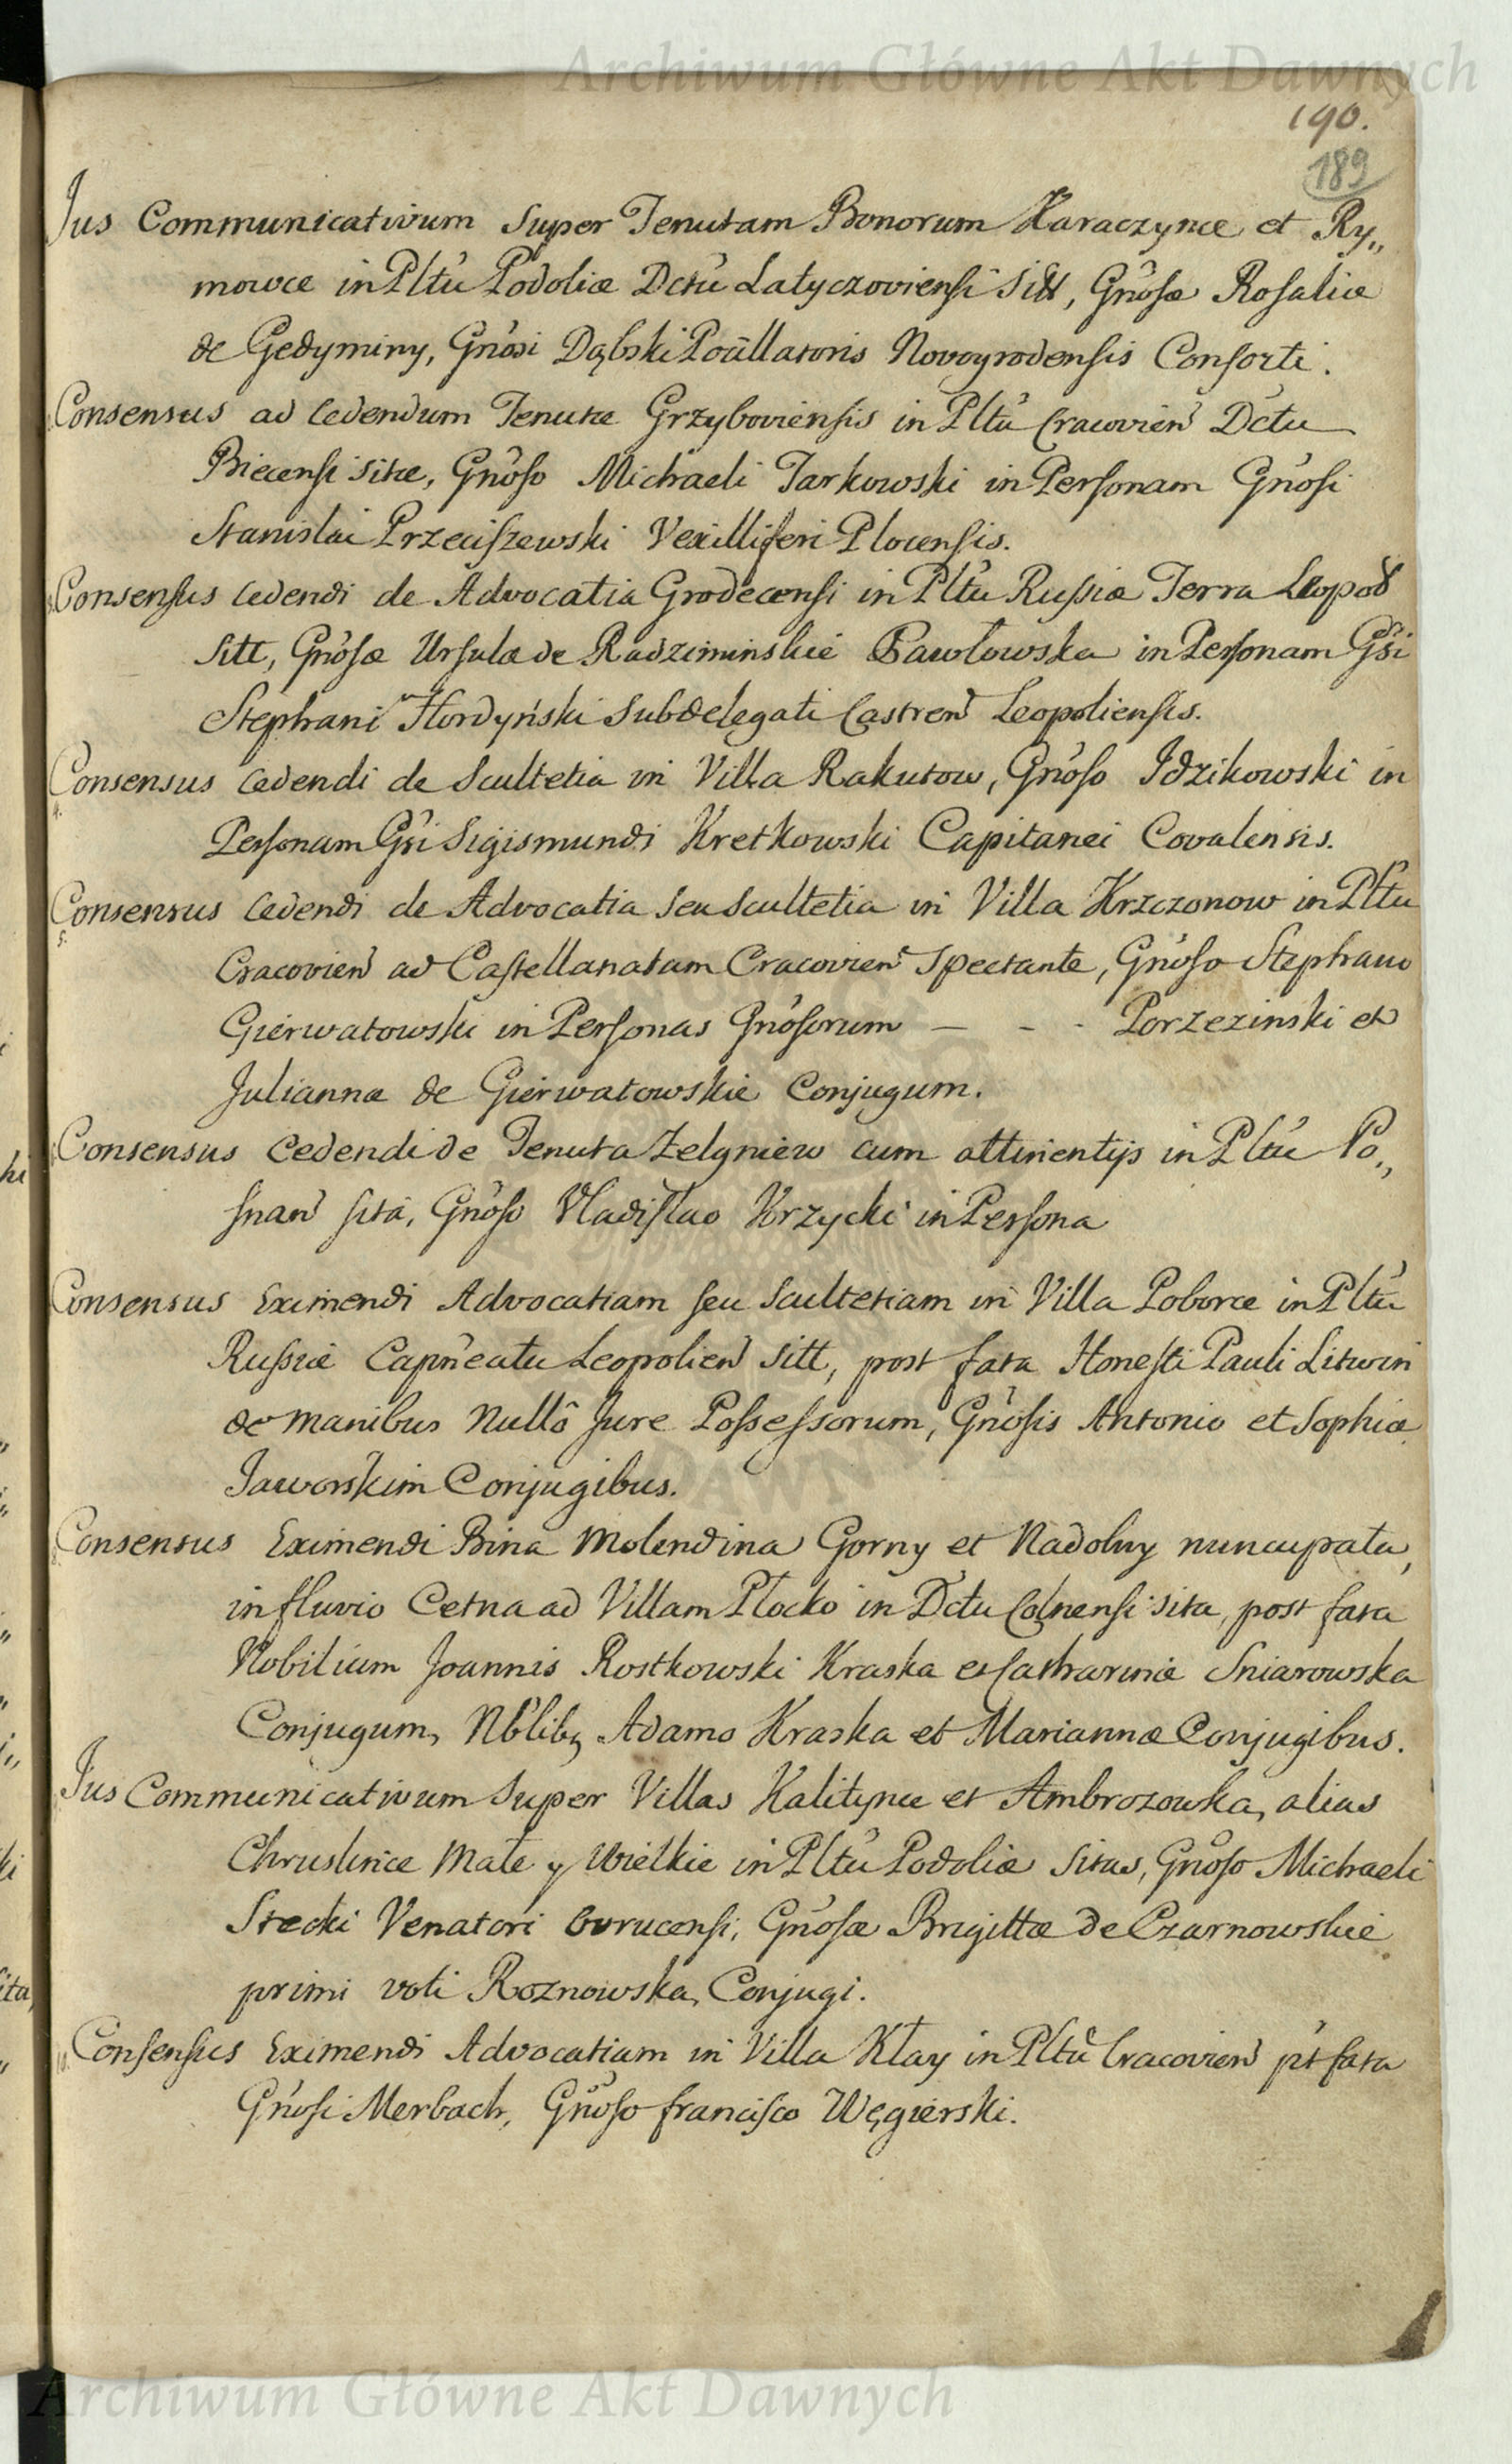 Archiwum Główne Akt Dawnych
190.
189
Jus Communicativum Super Tenutam Bonorum Karaczynce et Ry„
mowce in Pltu Podoliæ Dctu Latyczoviensi Sitt, Gnosæ Rosaliæ
de Gedyminy, Gnosi Dąbski Pocillatoris Novogrodensis Consorti.
Consensus ad Cedendum Tenutæ Grzyboviensis in Pltu Cracovien Dctu
Biecensi sitæ, Gnoso Michaeli Tarkowski in Personam Gnosi
Stanislai Przeciszewski Vexilliferi Plocensis.
Consensus Cedendi de Advocatia Grodecensi in Pltu Russiæ Terra Leopol
Sitt, Gnosæ Ursulæ de Radziminskie Pawłowska in Personam Gsi
Stephani Hordyński Subdelegati Castren Leopoliensis.
Consensus Cedendi de Scultetia in Villa Rakutow, Gnoso Idzikowski in
Personam Gsi Sigismundi Kretkowski Capitanei Covalensis.
Consensus Cedendi de Advocatia seu Scultetia in Villa Krzczonow in Pltu
5.
Cracovien ad Castellanatum Cracovien Spectante, Gnoso Stephano
Gierwatowski in Personas Gnosorum – - - Porzezinski et
Juliannæ de Gierwatowskie Conjugum.
Consensus Cedendi de Tenuta Zelgniew cum attinentijs in Pltu Po„
snan sita, Gnoso Vladislao Krzycki in Persona
Consensus Eximendi Advocatiam seu Scultetiam in Villa Poborce in Pltu
Russiæ Capneatu Leopolien Sitt, post fata Honesti Pauli Litwin
de manibus Nullô Jure Possessorum, Gnosis Antonio et Sophiæ
Jaworskim Conjugibus.
Consensus Eximendi Bina Molendina Gorny et Nadolny nuncupata,
in fluvio Cetna ad Villam Płocko in Dctu Colnensi sita, post fata
Nobilium Joannis Rostkowski Kraska et Catharinæ Sniarowska
Conjugum, Nblibȝ Adamo Kraska et Mariannæ Conjugibus.
Jus Communicativum Super Villas Kalitynce et Ambrozowka, alias
Chruslince Małe y Wielkie in Pltu Podoliæ Sitas, Gnoso Michaeli
Stecki Venatori Owrucensi, Gnosæ Brigittæ de Czarnowskie
primi voti Roznowska, Conjugi.
Consensus Eximendi Advocatiam in Villa Kłay in Pltu Cracovien pt fata
Gnosi Merbach, Gnoso Francisco Węgierski.
Archiwum Główne Akt Dawnych